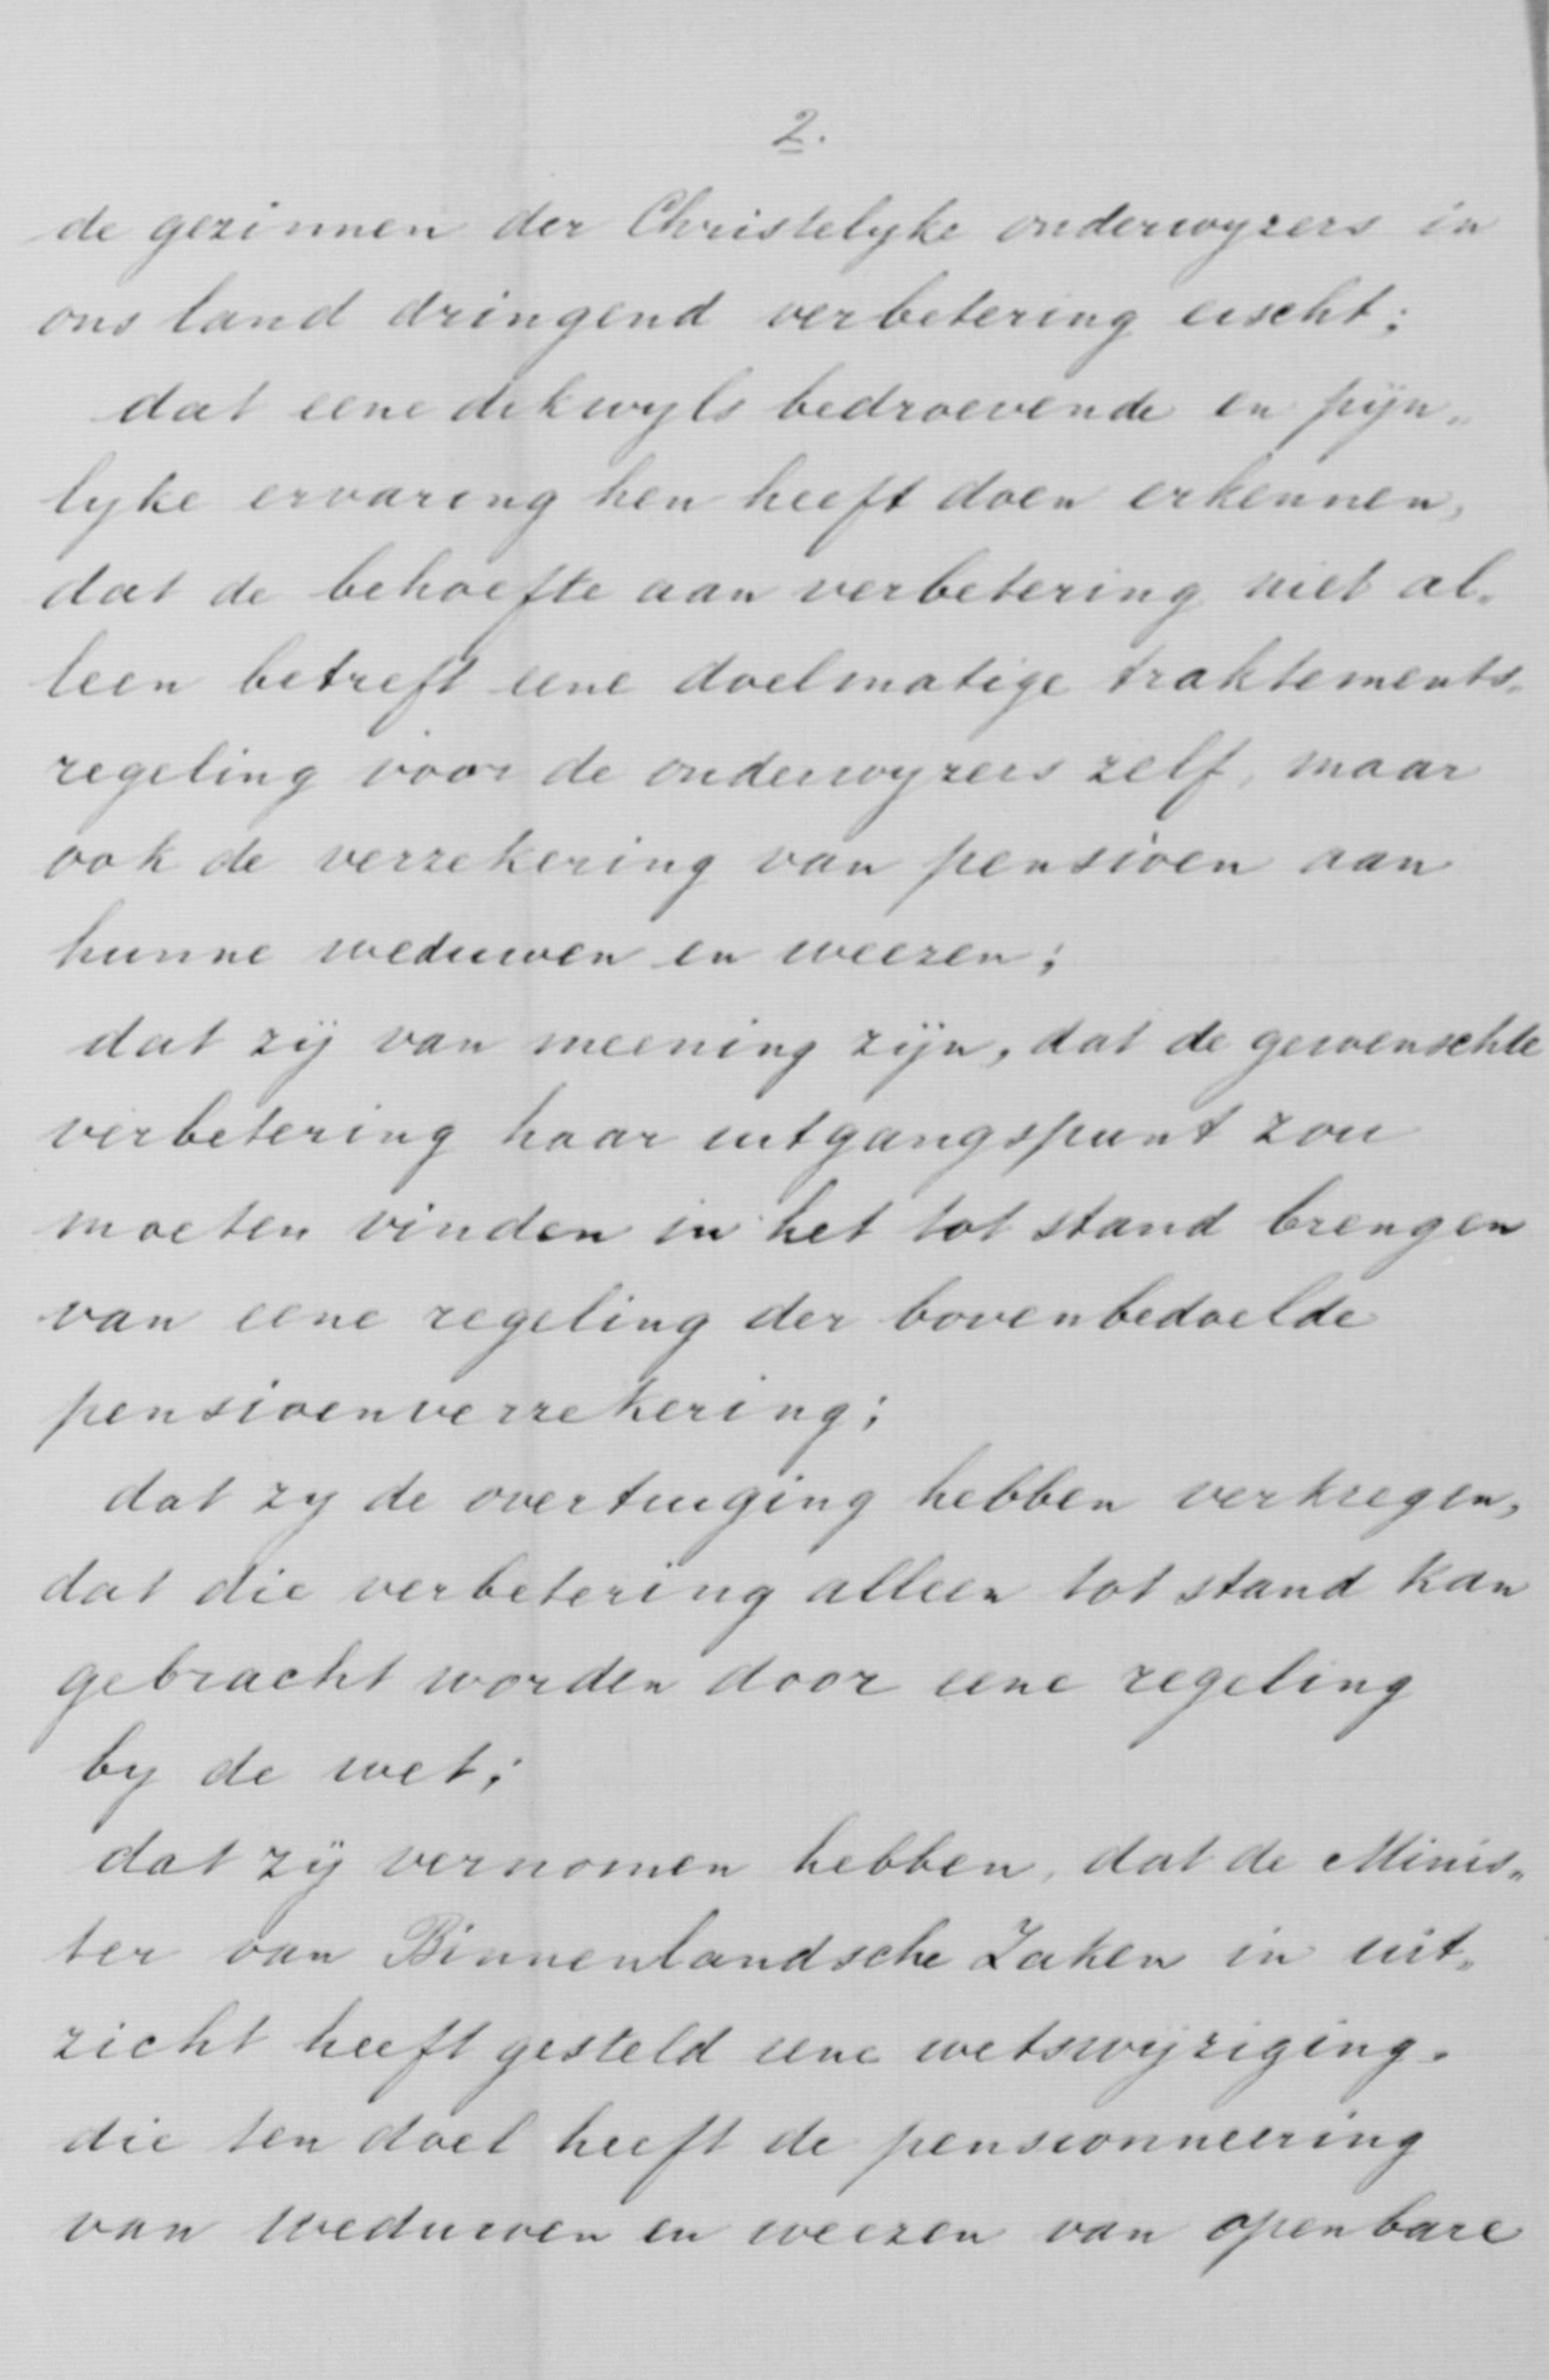 2.
de gezinnen der Christelyke onderwyzers in
ons land dringend verbetering eischt;
dat eene dikwyls bedroevende en pijn„
lyke ervaring hen heeft doen erkennen,
dat de behoefte aan verbetering niet al„
leen betreft eene doelmatige traktements„
regeling voor de onderwyzers zelf, maar
ook de verzekering van pensioen aan
hunne weduwen en weezen;
dat zij van meening zijn, dat de gewenschte
verbetering haar uitgangspunt zou
moeten vinden in het tot stand brengen
van eene regeling der bovenbedoelde
pensioenverzekering;
dat zy de overtuiging hebben verkregen,
dat die verbetering alleen tot stand kan
gebracht worden door eene regeling
by de wet;
dat zij vernomen hebben, dat de Minis„
ter van Binnenlandsche Zaken in uit„
zicht heeft gesteld eene wetswijziging.
die ten doel heeft de pensionneering
van weduwen en weezen van openbare